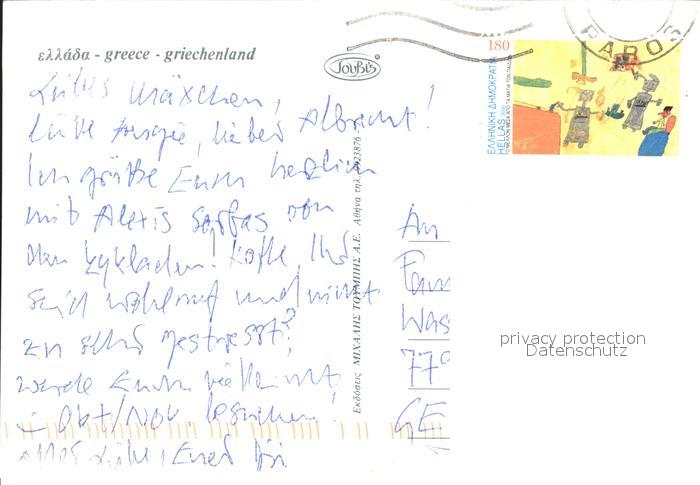 ελλάδα - greece - griechenland
Τουμπής
180
ΕΛΛΗΝΙΚΗ ΔΗΜΟΚΡΑΤΙΑ
HELLAS 2000
PAROS
Liebes Mäxchen,
liebe liebes Albrecht!
Ich grüße Euch herzlich
mit Alexis Sorbas von
den Zykladen! Hoffe, Ihr
seid wohlauf und nicht
zu sehr gestresst?
werde Euch vielleicht
i. Okt/Nov. besuchen!
Alles Liebe, Euer
Εκδόσεις ΜΙΧΑΛΗΣ ΤΟΥΜΠΗΣ Α.Ε. Αθήνα τηλ. 9923876
An
Fam
Was
77
GE
privacy protection
Datenschutz